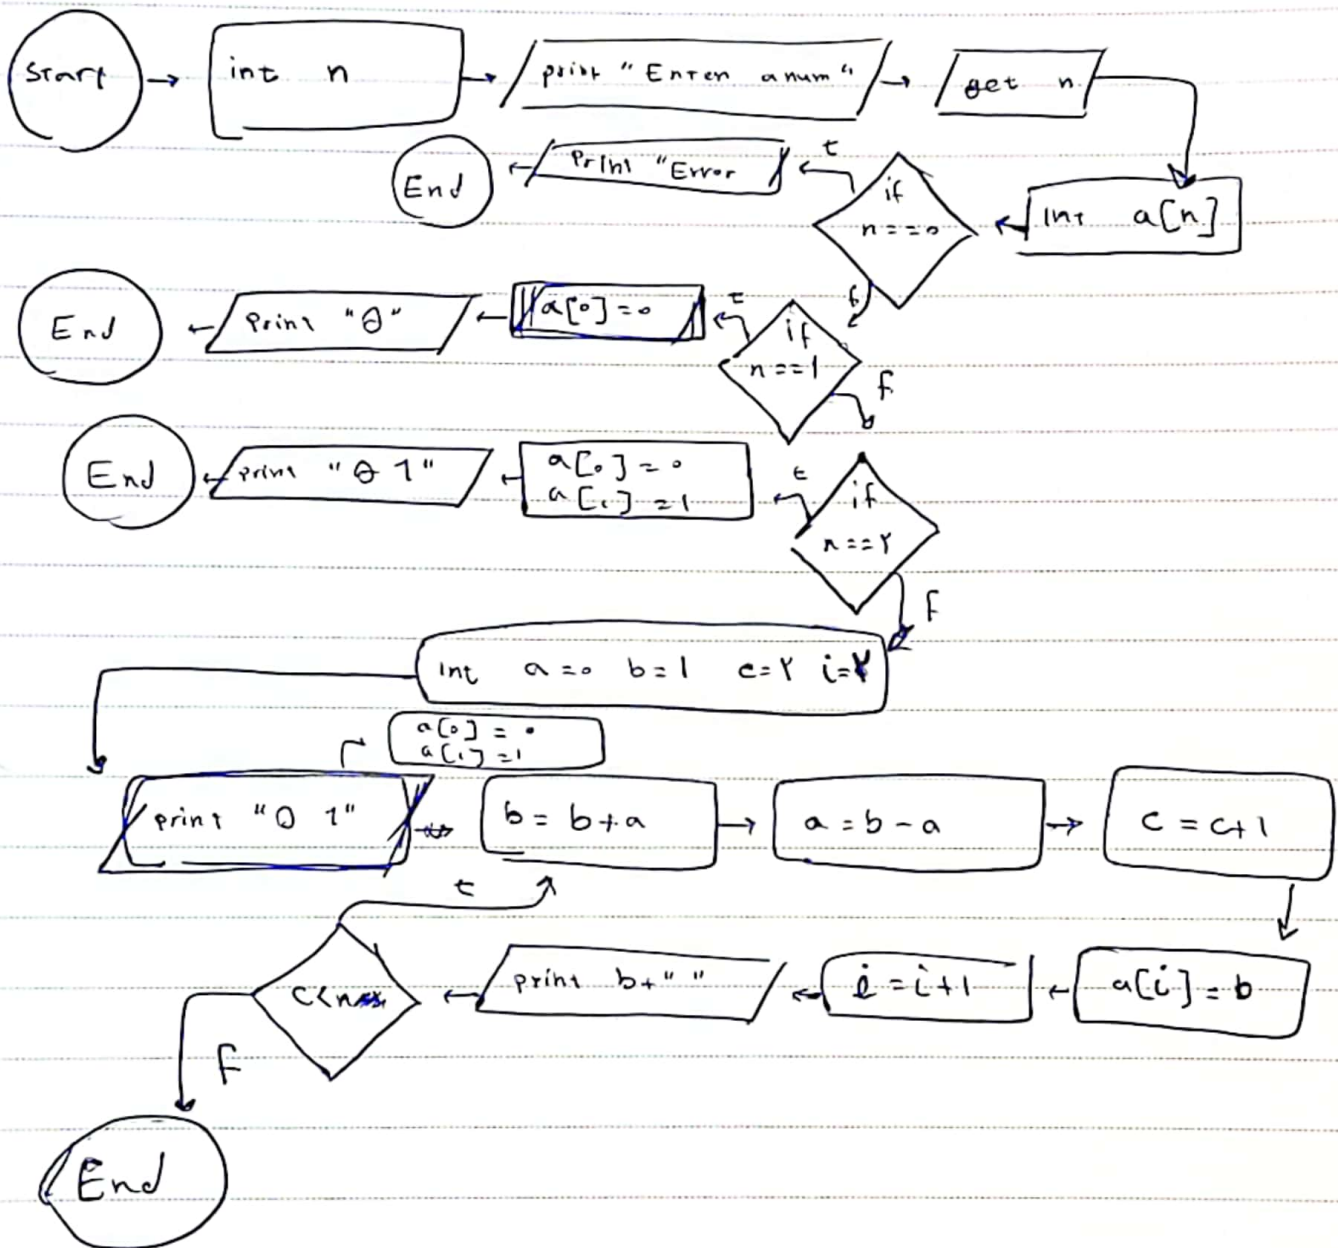 Start
int n
print "Enter a num"
get n
int a[n]
if
n==0
t
print "Error
End
f
if
n==1
t
a[0]=0
print "0"
End
f
if
n==۲
t
a[0]=0
a[1]=1
print "0 1"
End
f
int a=0 b=1 c=۲ i=۲
print "0 1"
a[0]=0
a[1]=1
b=b+a
a=b-a
c=c+1
a[i]=b
i=i+1
print b+" "
c<n
t
F
End